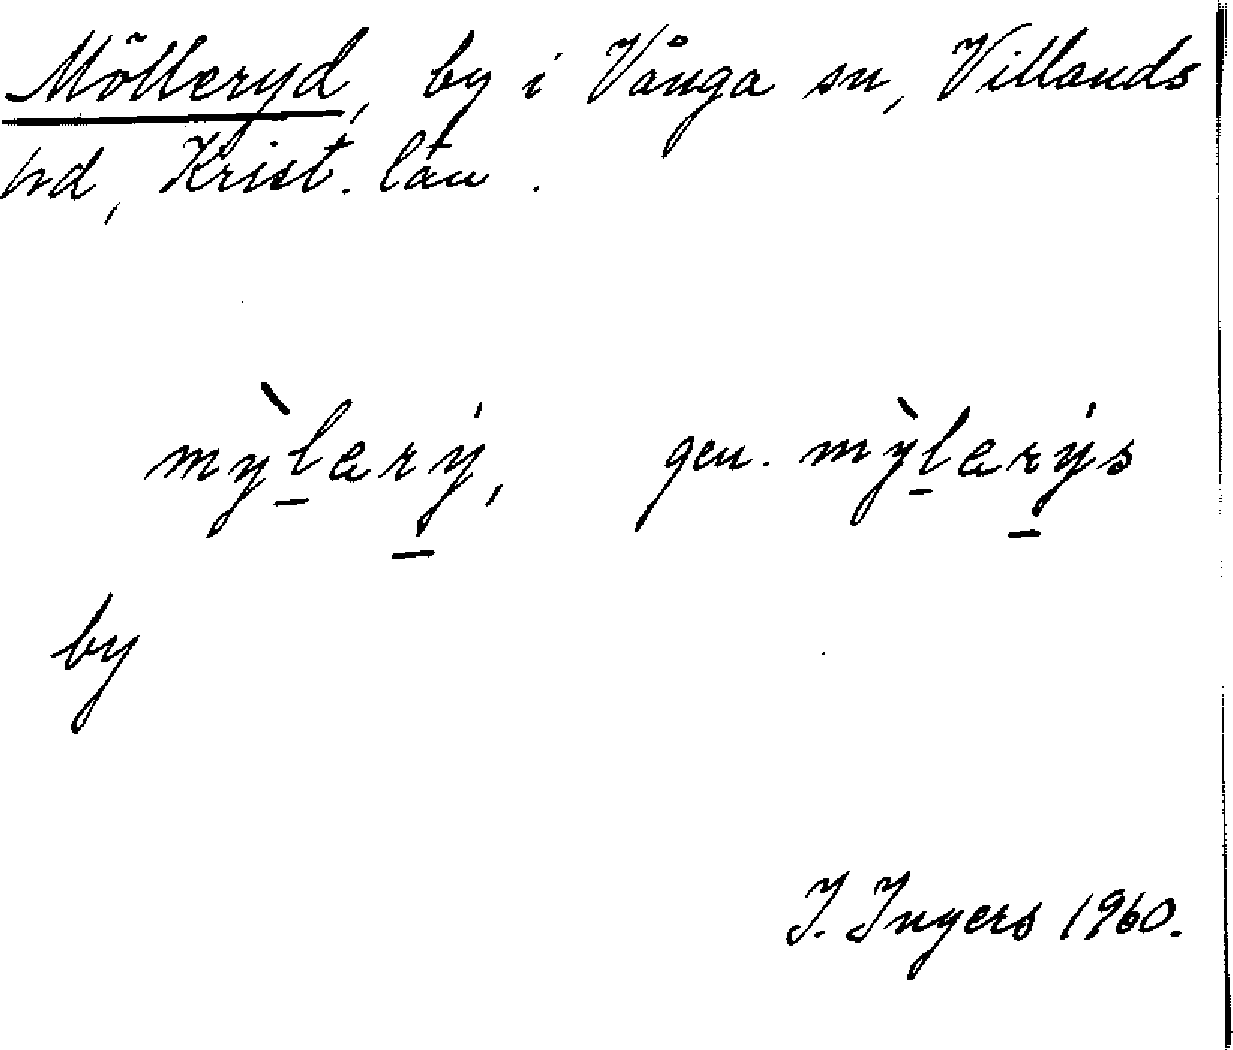 Mölleryd, by i Vånga sn, Villands
hd, Krist. län.
mỳl̠arý̠, gen. mỳl̠arý̠s
by
I. Ingers 1960.